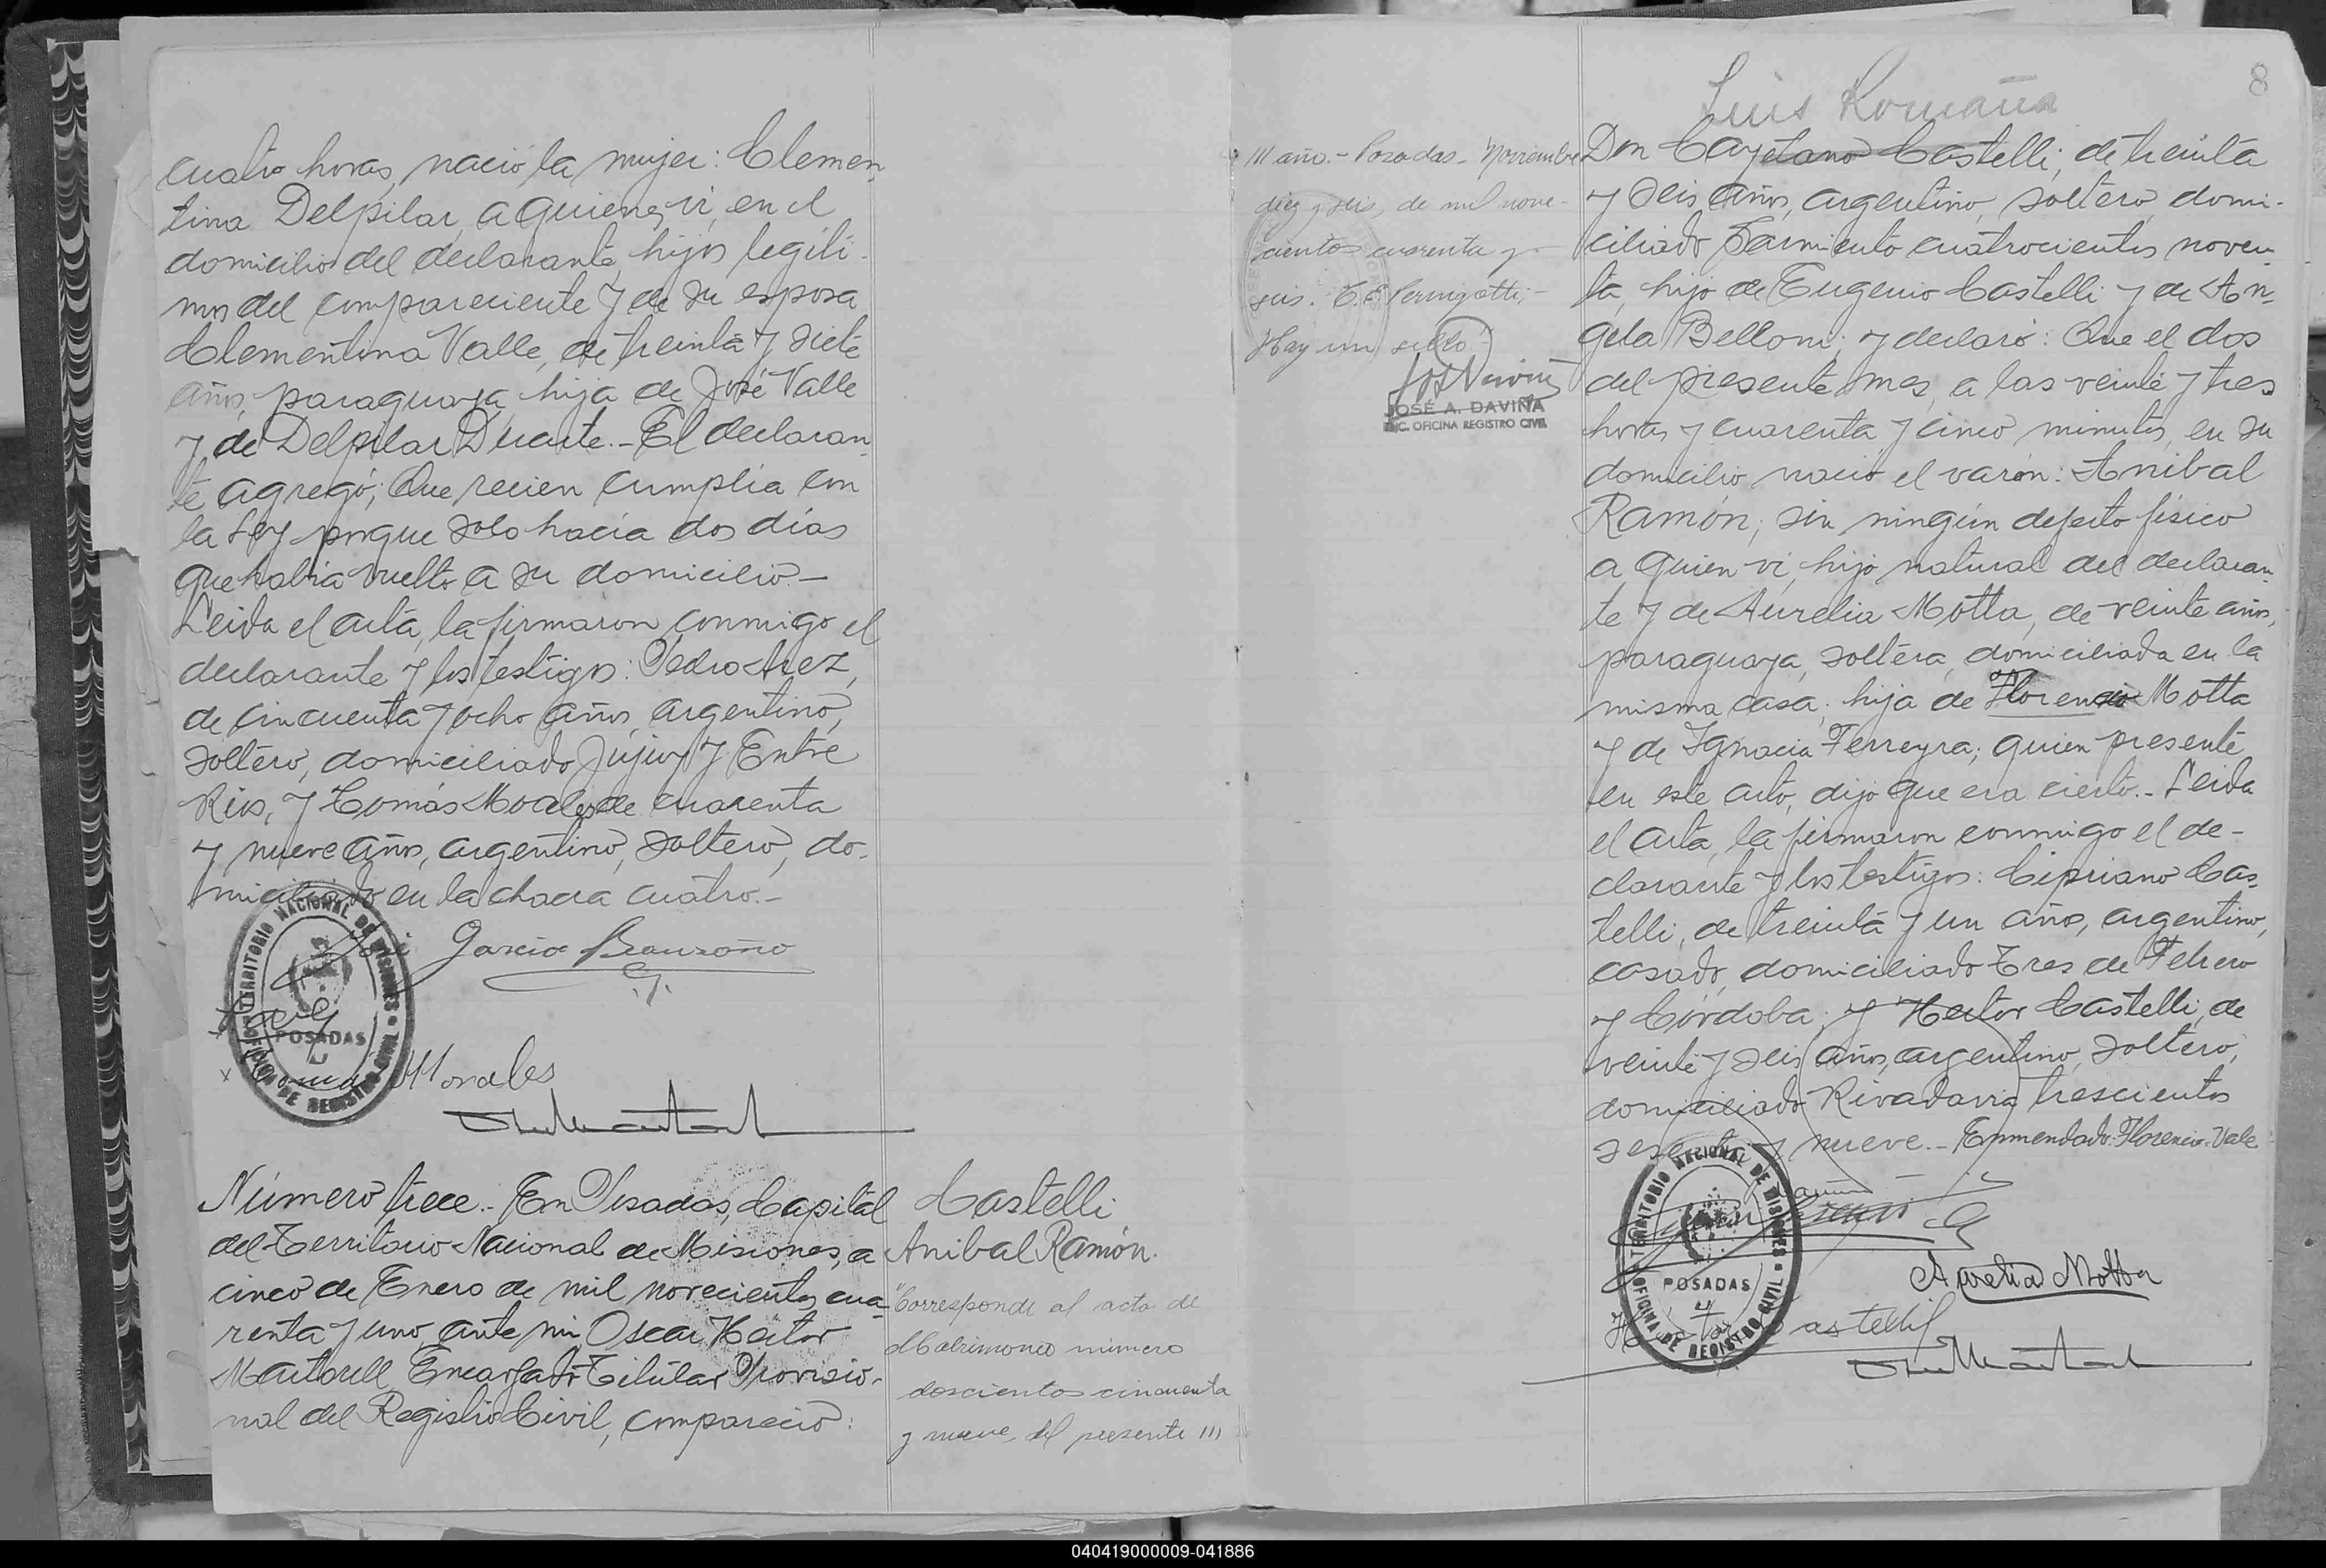 cuatro horas, nació la mujer: Clemen-
tina Delpilar, a quienes vi, en el
domicilio del declarante, hijos legíti-
mos del compareciente y de su esposa
Clementina Valle, de treinta y siete
años, paraguaya, hija de José Valle
y de Delpilar Duarte.- El declaran-
te agregó; Que recien cumplía con
la Ley porque solo hacía dos días
que habia vuelto a su domicilio.-
Leida el acta, la firmaron conmigo el
declarante y los testigos: Pedro
de cincuenta y ocho años, argentino,
soltero, domiciliado Jujuy y Entre
Rios, y Tomás Morales de cuarenta
y nueve años, argentino, soltero, do-
miciliado en la chacra cuatro.-
García
TERRITORIO NACIONAL DE MISIONES
POSADAS
OFICINA DE REGISTRO CIVIL
Tomas Morales
Número trece.- En Posadas, Capital
del Territorio Nacional de Misiones, a
cinco de Enero de mil novecientos cua-
renta y uno, ante mi Oscar Hector
Martorell, Encargado Titular Proviso-
nal del Registro Civil, compareció:
Castelli
Anibal Ramón.
"Corresponde al acta de
Matrimonio número
doscientos cincuenta
y nueve, del presente 111
8
Luis Romaña
111 año.- Posadas. Noviembre
diez y seis, de mil nove-
cientos cuarenta y
seis. Pernigotti.-
Hay un sello."
JOSÉ A. DAVIÑA
ENC. OFICINA REGISTRO CIVIL
Don Cayetano Castelli; de treinta
y seis años, argentino, soltero, domi-
ciliado Sarmiento cuatrocientos noven-
ta, hijo de Eugenio Castelli y de An-
gela Belloni; y declaró: Que el dos
del presente mes, a las veinte y tres
horas y cuarenta y cinco minutos, en su
domicilio nació el varón: Anibal
Ramón; sin ningún defecto físico
a quien vi, hijo natural del declaran-
te y de Aurelia Motta, de veinte años,
paraguaya, soltera, domiciliada en la
misma casa; hija de Florencio Motta
y de Ignacia Ferreyra; quien presente
en este acto, dijo que era cierto.- Leida
el acta, la firmaron conmigo el de-
clarante y los testigos: Cipriano Cas-
telli, de treinta y un años, argentino,
casado, domiciliado Tres de Febrero
y Córdoba; y Hector Castelli, de
veinte y seis años, argentino, soltero,
domiciliado Rivadavia trescientos
sesenta y nueve.- Enmendado: Florencio. Vale
TERRITORIO NACIONAL DE MISIONES
POSADAS
OFICINA DE REGISTRO CIVIL
Aurelia Motta
Castelli
040419000009-041886